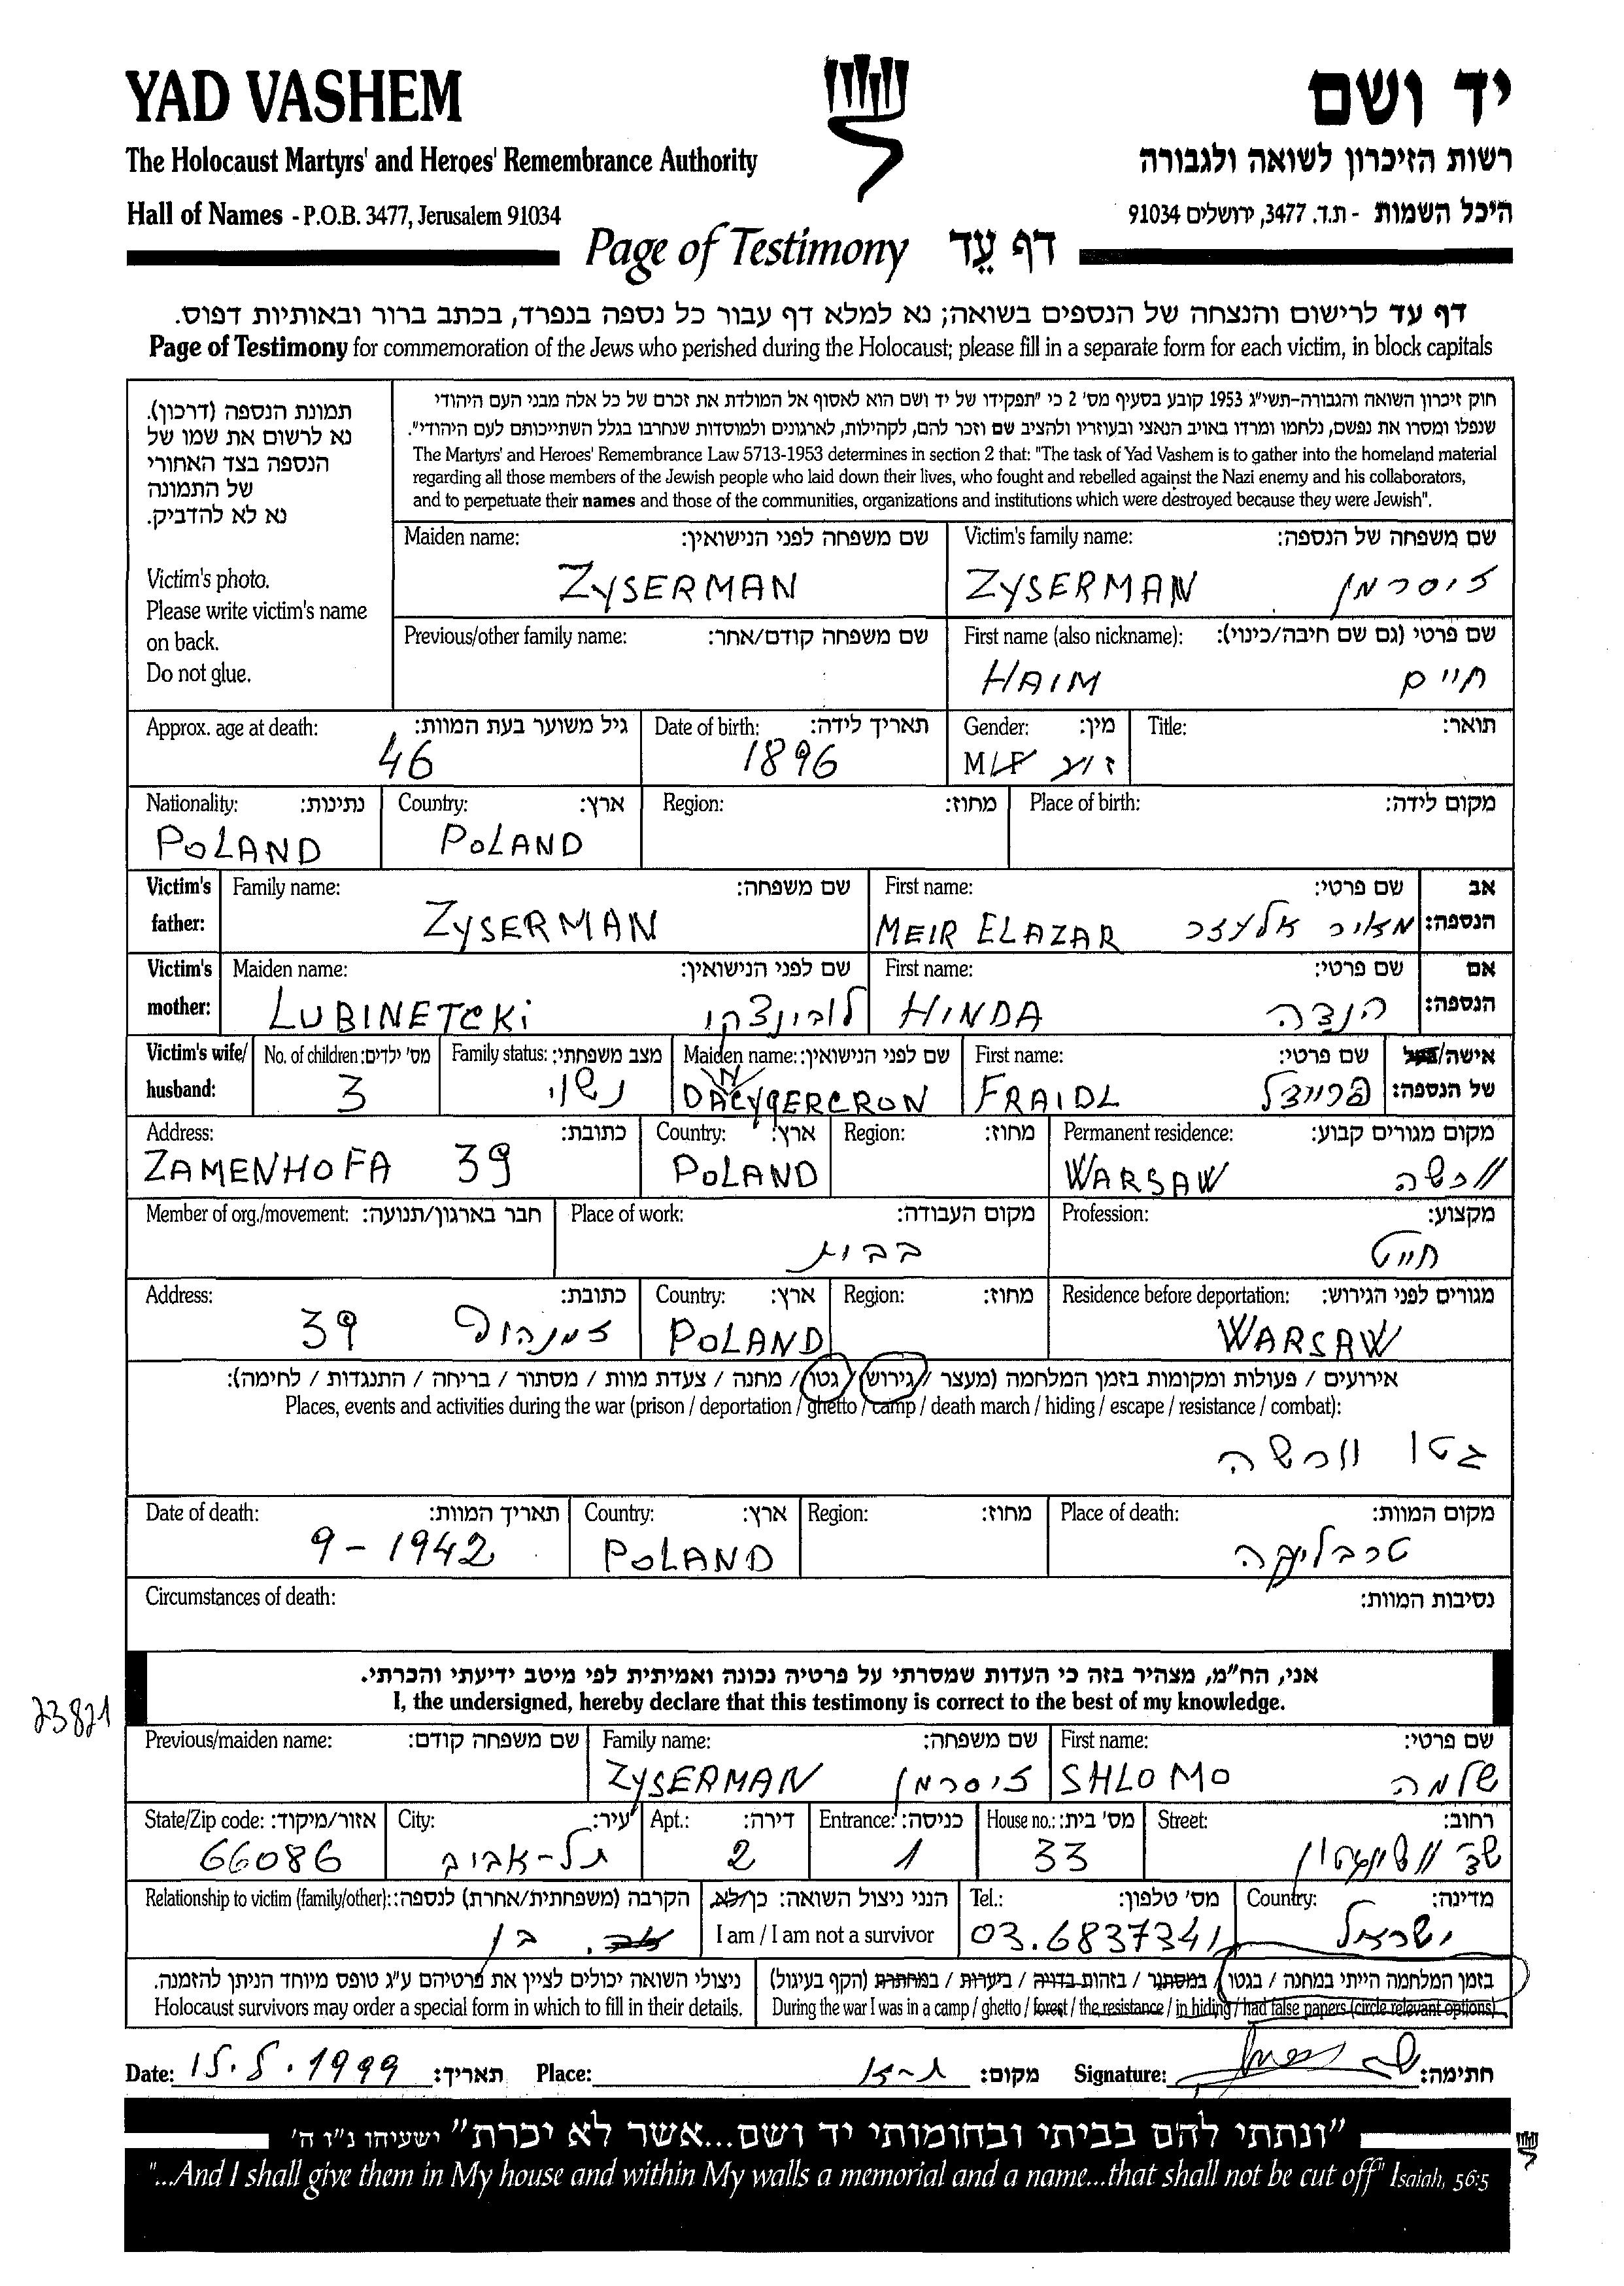 YAD VASHEM
יד ושם
The Holocaust Martyrs' and Heroes' Remembrance Authority
רשות הזיכרון לשואה ולגבורה
Hall of Names - P.O.B. 3477, Jerusalem 91034
היכל השמות - ת.ד. 3477, ירושלים 91034
Page of Testimony דף עֵד
דף עד לרישום והנצחה של הנספים בשואה; נא למלא דף עבור כל נספה בנפרד, בכתב ברור ובאותיות דפוס.
Page of Testimony for commemoration of the Jews who perished during the Holocaust; please fill in a separate form for each victim, in block capitals
תמונת הנספה (דרכון).
נא לרשום את שמו של
הנספה בצד האחורי
של התמונה
נא לא להדביק.
Victim's photo.
Please write victim's name
on back.
Do not glue.
חוק זיכרון השואה והגבורה-תשי"ג 1953 קובע בסעיף מס' 2 כי "תפקידו של יד ושם הוא לאסוף אל המולדת את זכרם של כל אלה מבני העם היהודי
שנפלו ומסרו את נפשם, נלחמו ומרדו באויב הנאצי ובעוזריו ולהציב שם וזכר להם, לקהילות, לארגונים ולמוסדות שנחרבו בגלל השתייכותם לעם היהודי".
The Martyrs' and Heroes' Remembrance Law 5713-1953 determines in section 2 that: "The task of Yad Vashem is to gather into the homeland material
regarding all those members of the Jewish people who laid down their lives, who fought and rebelled against the Nazi enemy and his collaborators,
and to perpetuate their names and those of the communities, organizations and institutions which were destroyed because they were Jewish".
Maiden name: שם משפחה לפני הנישואין: Victim's family name: שם משפחה של הנספה:
ZYSERMAN ZYSERMAN זיסרמן
Previous/other family name: שם משפחה קודם/אחר: First name (also nickname): שם פרטי (גם שם חיבה/כינוי):
HAIM חיים
Approx. age at death: גיל משוער בעת המוות: Date of birth: תאריך לידה: Gender: מין: Title: תואר:
46 1896 M/F זכר
Nationality: נתינות: Country: ארץ: Region: מחוז: Place of birth: מקום לידה:
POLAND POLAND
Victim's father: Family name: שם משפחה: First name: שם פרטי: אב הנספה:
ZYSERMAN MEIR ELAZAR מאיר אלעזר
Victim's mother: Maiden name: שם לפני הנישואין: First name: שם פרטי: אם הנספה:
LUBINETCKI לובינצקי HINDA הנדה
Victim's wife/ husband: No. of children: מס' ילדים: Family status: מצב משפחתי: Maiden name: שם לפני הנישואין: First name: שם פרטי: אישה/בעל של הנספה:
3 נשוי FRAIDL פריידל
Address: כתובת: Country: ארץ: Region: מחוז: Permanent residence: מקום מגורים קבוע:
ZAMENHOFA 39 POLAND WARSAW וורשה
Member of org./movement: חבר בארגון/תנועה: Place of work: מקום העבודה: Profession: מקצוע:
בבית חייט
Address: כתובת: Country: ארץ: Region: מחוז: Residence before deportation: מגורים לפני הגירוש:
39 זמנהוף POLAND WARSAW
אירועים / פעולות ומקומות בזמן המלחמה (מעצר / גירוש / גטו / מחנה / צעדת מוות / מסתור / בריחה / התנגדות / לחימה):
Places, events and activities during the war (prison / deportation / ghetto / camp / death march / hiding / escape / resistance / combat):
גטו וורשה
Date of death: תאריך המוות: Country: ארץ: Region: מחוז: Place of death: מקום המוות:
9-1942 POLAND טרבלינקה
Circumstances of death: נסיבות המוות:
אני, הח"מ, מצהיר בזה כי העדות שמסרתי על פרטיה נכונה ואמיתית לפי מיטב ידיעתי והכרתי.
I, the undersigned, hereby declare that this testimony is correct to the best of my knowledge.
23821
Previous/maiden name: שם משפחה קודם: Family name: שם משפחה: First name: שם פרטי:
ZYSERMAN זיסרמן SHLOMO שלמה
State/Zip code: אזור/מיקוד: City: עיר: Apt.: דירה: Entrance: כניסה: House no.: מס' בית: Street: רחוב:
66086 תל-אביב 2 1 33 שד וושינגטון
Relationship to victim (family/other): הקרבה (משפחתית/אחרת) לנספה: הנני ניצול השואה: כן/לא Tel.: מס' טלפון: Country: מדינה:
בן I am / I am not a survivor 03.6837341 ישראל
ניצולי השואה יכולים לציין את פרטיהם ע"ג טופס מיוחד הניתן להזמנה.
Holocaust survivors may order a special form in which to fill in their details.
בזמן המלחמה הייתי במחנה / בגטו / במסתור / בזהות בדויה / ביערות / במחתרת (הקף בעיגול)
During the war I was in a camp / ghetto / forest / the resistance / in hiding / had false papers (circle relevant options)
Date: 15.5.1999 תאריך: Place: ת-א מקום: Signature: חתימה:
"ונתתי להם בביתי ובחומותי יד ושם...אשר לא יכרת" ישעיהו נ"ו ה'
"...And I shall give them in My house and within My walls a memorial and a name...that shall not be cut off" Isaiah, 56:5